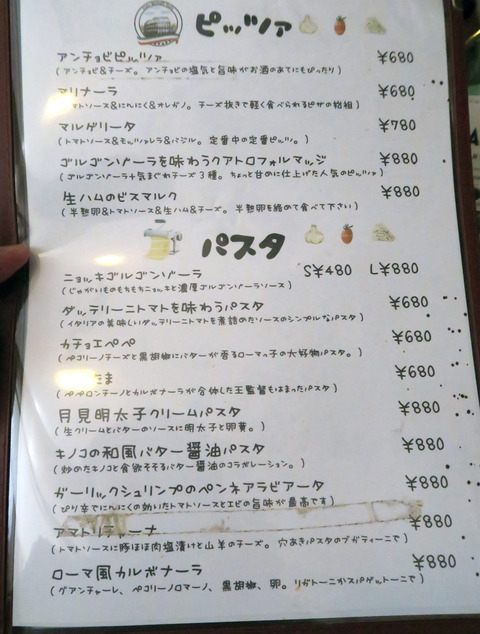 ピッツァ
アンチョビピッツァ ¥680
(アンチョビ&チーズ。アンチョビの塩気と旨味がお酒のあてにもぴったり)
マリナーラ ¥680
トマトソース&にんにく&オレガノ。チーズ抜きで軽く食べられるピザの始祖)
マルゲリータ ¥780
(トマトソース&モッツァレラ&バジル。定番中の定番ピッツ。)
ゴルゴンゾーラを味わうクアトロフォルマッジ ¥880
(ゴルゴンゾーラ+気まぐれチーズ3種。ちょっと甘めに仕上げた人気のピッツァ)
生ハムのビスマルク ¥880
(半熟卵&トマトソース&生ハム&チーズ。半熟卵を絡めて食べて下さい)
パスタ
ニョッキゴルゴンゾーラ S¥480 L¥880
(じゃがいものもちもちニョッキと濃厚ゴルゴンゾーラソース)
ダッテリーニトマトを味わうパスタ ¥680
(イタリアの美味しいダッテリーニトマトを煮詰めたソースのシンプルなパスタ)
カチョエペペ ¥680
(ペコリーノチーズと黒胡椒にバターが香るローマっ子の大好物パスタ。)
たま ¥680
(ペペロンチーノとカルボナーラが合体した王監督もはまったパスタ)
月見明太子クリームパスタ ¥880
(生クリームとバターのソースに明太子と卵黄。)
キノコの和風バター醤油パスタ ¥880
(炒めたキノコと食欲そそるバター醤油のコラボレーション。)
ガーリックシュリンプのペンネアラビアータ ¥880
(ピリ辛でにんにくの効いたトマトソースとエビの旨味が最高です)
アマトリチャーナ ¥880
(トマトソースに豚ほほ肉塩漬けと山羊のチーズ。穴あきパスタのブガティーニで)
ローマ風カルボナーラ ¥880
(グアンチャーレ、ペコリーノロマーノ、黒胡椒、卵。リガトーニかスパゲットーニで)